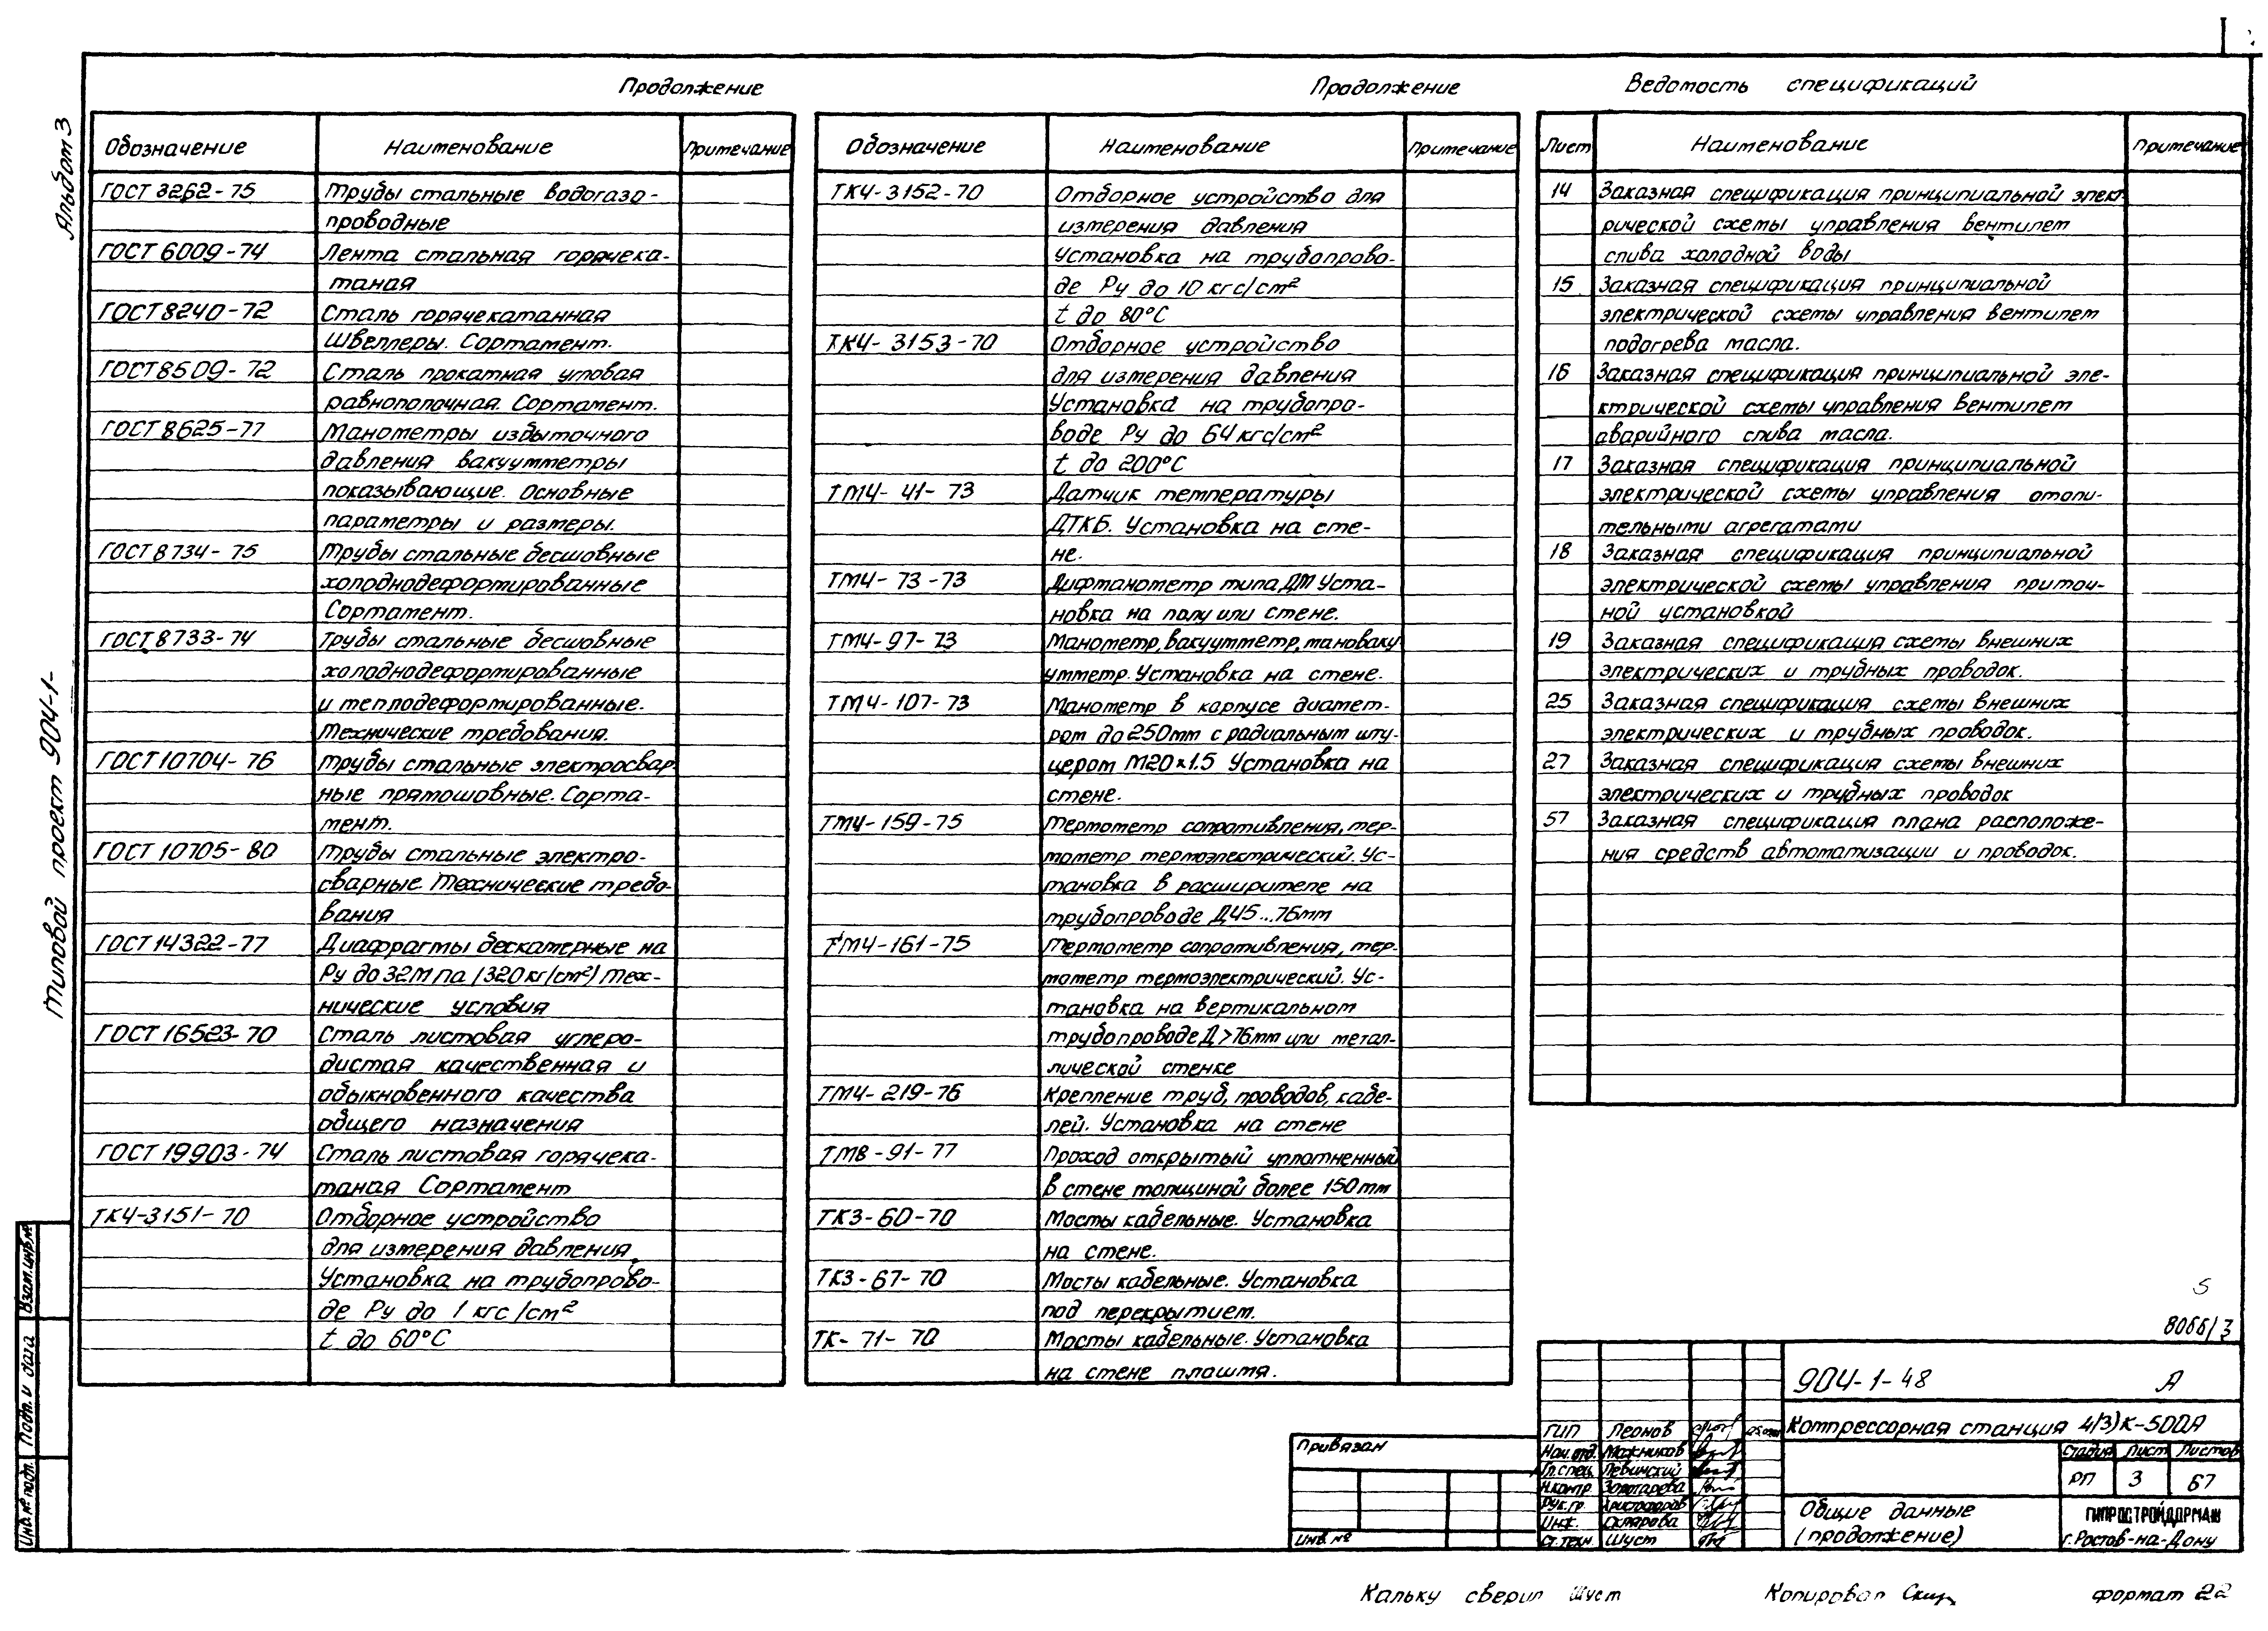 Альбом 3
Типовой проект 904-1-
Продолжение
Обозначение Наименование Примечание
ГОСТ 3262-75 Трубы стальные водогазо-
проводные
ГОСТ 6009-74 Лента стальная горячека-
таная
ГОСТ 8240-72 Сталь горячекатанная
Швеллеры. Сортамент.
ГОСТ 8509-72 Сталь прокатная угловая
равнополочная. Сортамент.
ГОСТ 8625-77 Манометры избыточного
давления вакуумметры
показывающие. Основные
параметры и размеры.
ГОСТ 8734-75 Трубы стальные бесшовные
холоднодеформированные
Сортамент.
ГОСТ 8733-74 Трубы стальные бесшовные
холоднодеформированные
и теплодеформированные.
Технические требования.
ГОСТ 10704-76 Трубы стальные электросвар
ные прямошовные. Сорта-
мент.
ГОСТ 10705-80 Трубы стальные электро-
сварные. Технические требо-
вания
ГОСТ 14322-77 Диафрагмы бескамерные на
Ру до 32МПа (320кг/см²) Тех-
нические условия
ГОСТ 16523-70 Сталь листовая углеро-
дистая качественная и
обыкновенного качества
общего назначения
ГОСТ 19903-74 Сталь листовая горячека-
таная Сортамент
ТК4-3151-70 Отборное устройство
для измерения давления,
Установка на трубопрово-
де Ру до 1 кгс/см²
t до 60°С
Продолжение
Обозначение Наименование Примечание
ТК4-3152-70 Отборное устройство для
измерения давления
Установка на трубопрово-
де Ру до 10 кгс/см²
t до 80°С
ТК4-3153-70 Отборное устройство
для измерения давления
Установка на трубопро-
воде Ру до 64 кгс/см²
t до 200°С
ТМ4-41-73 Датчик температуры
ДТКБ. Установка на сте-
не.
ТМ4-73-73 Дифманометр типа ДМ Уста-
новка на полу или стене.
ТМ4-97-73 Манометр, вакуумметр, мановаку
умметр. Установка на стене.
ТМ4-107-73 Манометр в корпусе диамет-
ром до 250мм с радиальным шту-
цером М20×1.5 Установка на
стене.
ТМ4-159-75 Термометр сопротивления, тер-
мометр термоэлектрический. Ус-
тановка в расширителе на
трубопроводе Д45...76мм
ТМ4-161-75 Термометр сопротивления, тер-
мометр термоэлектрический. Ус-
тановка на вертикальном
трубопроводе Д>76мм или метал-
лической стенке
ТМ4-219-76 Крепление труб, проводов, кабе-
лей. Установка на стене
ТМ8-91-77 Проход открытый уплотненный
в стене толщиной более 150мм
ТК3-60-70 Мосты кабельные. Установка
на стене.
ТК3-67-70 Мосты кабельные. Установка
под перекрытием.
ТК-71-70 Мосты кабельные. Установка
на стене плашмя.
Ведомость спецификаций
Лист Наименование Примечание
14 Заказная спецификация принципиальной элект
рической схемы управления вентилем
слива холодной воды
15 Заказная спецификация принципиальной
электрической схемы управления вентилем
подогрева масла.
16 Заказная спецификация принципиальной эле-
ктрической схемы управления вентилем
аварийного слива масла.
17 Заказная спецификация принципиальной
электрической схемы управления отопи-
тельными агрегатами
18 Заказная спецификация принципиальной
электрической схемы управления приточ-
ной установкой
19 Заказная спецификация схемы внешних
электрических и трубных проводок.
25 Заказная спецификация схемы внешних
электрических и трубных проводок.
27 Заказная спецификация схемы внешних
электрических и трубных проводок
57 Заказная спецификация плана расположе-
ния средств автоматизации и проводок.
5
8066/3
904-1-48 А
Компрессорная станция 4(3)К-500А
ГИП Леонов
Нач.отд. Мажников
Гл.спец. Левинский
Н.контр Золотарева
Рук.гр. Христофоров
Инж. Склярова
Ст.техн. Шуст
Стадия Лист Листов
РП 3 67
Общие данные
(продолжение)
ГИПРОСТРОЙДОРМАШ
г.Ростов-на-Дону
Привязан
Инв.№
Взам.инв.№
Подп. и дата
Инв.№ подл.
Кальку сверил Шуст Копировал формат 22